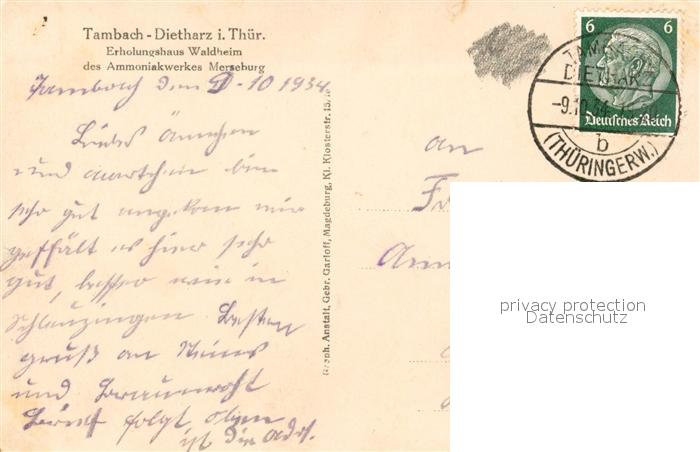 Tambach - Dietharz i. Thür.
Erholungshaus Waldheim
des Ammoniakwerkes Merseburg
Tambach den 9-10 1934
Liebes Ännchen
und bin
sehr gut angekom mir
gefällt es hier sehr
gut, besser wie in
Schleuzingen Besten
gruß an
und
Brief folgt, oben
ist die adr.
Graph. Anstalt, Gebr. Garloff, Magdeburg, Kl. Klosterstr. 15/
an
6 6
Deutsches Reich
TAMBA
DIETHAR
-9.10.34
b
(THÜRINGERW.)
privacy protection
Datenschutz